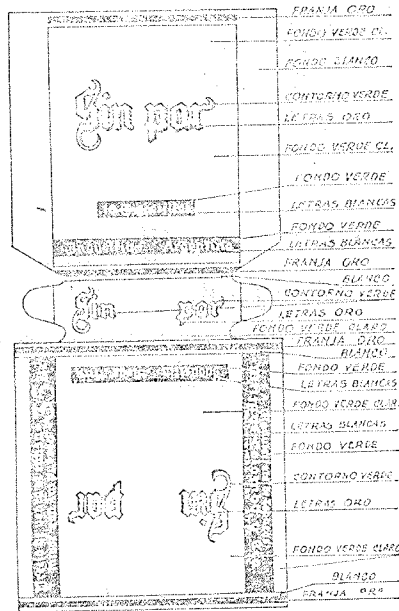 FRANJA ORO
FONDO VERDE CL.
FONDO BLANCO
CONTORNO VERDE
Sin par
LETRAS ORO
FONDO VERDE CL.
FONDO VERDE
LETRAS BLANCAS
FONDO VERDE
LETRAS BLANCAS
FRANJA ORO
BLANCO
CONTORNO VERDE
Sin par
LETRAS ORO
FONDO VERDE CLARO
FRANJA ORO
BLANCO
FONDO VERDE
LETRAS BLANCAS
FONDO VERDE CLAR.
LETRAS BLANCAS
FONDO VERDE
CONTORNO VERDE
Sin par
LETRAS ORO
FONDO VERDE CLARO
BLANCO
FRANJA ORO